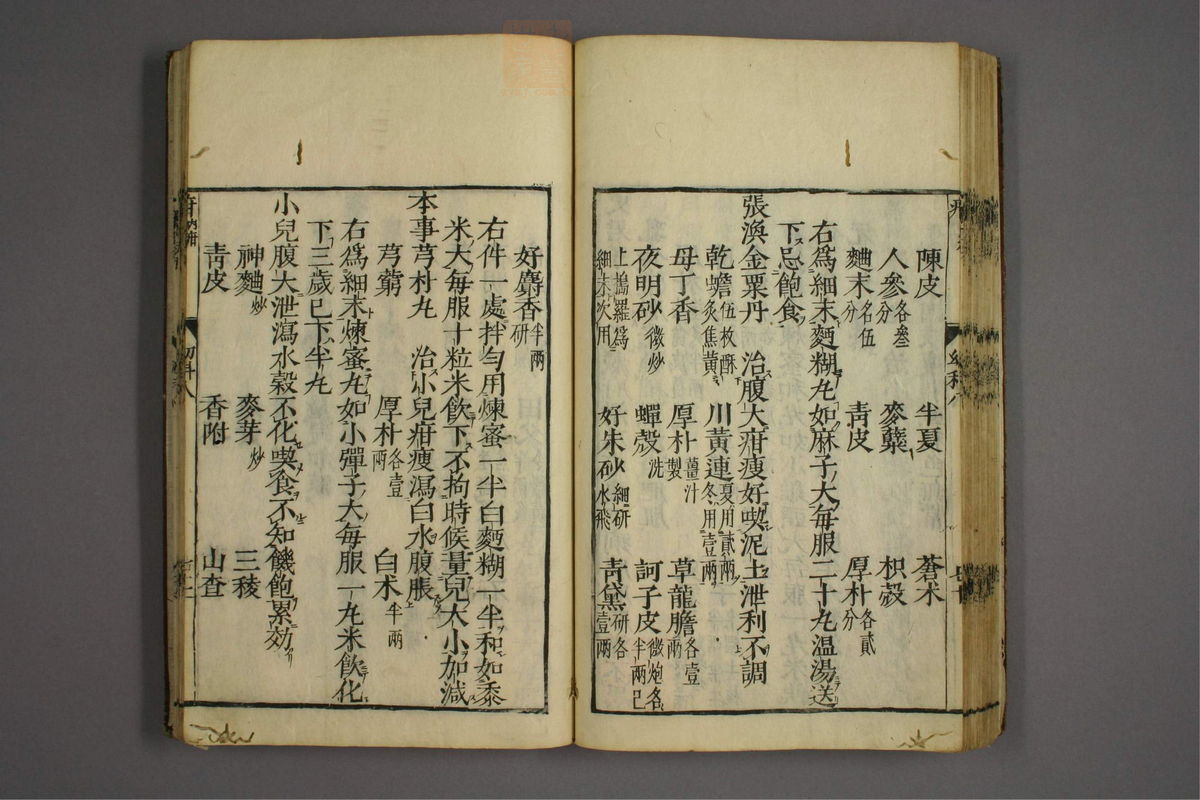 陳皮　半夏　蒼朮
人參各叁分　麥蘖　枳殼
麯末各伍分　青皮　厚朴各貳分
右爲細末麪糊丸如麻子大每服二十丸温湯送
下忌飽食
張渙金粟丹　治腹大疳瘦好喫泥土泄利不調
乾蟾伍枚酥炙焦黄　川黄連夏用貳兩冬用壹兩
母丁香　厚朴薑汁製　草龍膽各壹兩
夜明砂微炒　蟬殼洗　訶子皮微炮各半兩已
上擣羅爲細末次用　好朱砂細研水飛　青黛研各壹兩
好麝香半兩研
右件一處拌勻用煉蜜一半白麪糊一半和如黍
米大每服十粒米飲下不拘時候量兒大小加減
本事芎朴丸　治小兒疳瘦瀉白水腹脹
芎藭　厚朴各壹兩　白朮半兩
右爲細末煉蜜丸如小彈子大每服一丸米飲化
下三歲已下半丸
小兒腹大泄瀉水穀不化喫食不知饑飽累効
神麯炒　麥芽炒　三稜
青皮　香附　山查